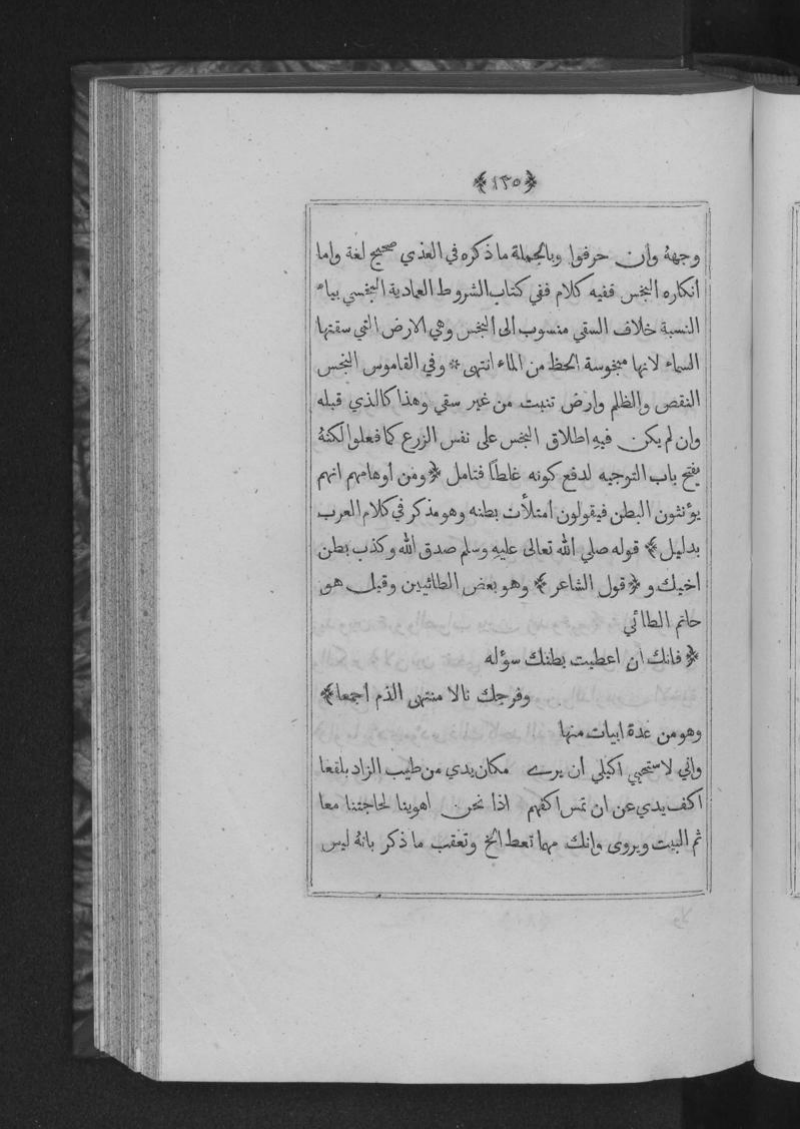 ﴿١٣٥﴾
وجههُ وان حرفوا وبالجملة ما ذكره في العذي صحيح لغة واما
انكاره البخس ففيه كلام ففي كتاب الشروط العمادية البخسي بياء
النسبة خلاف السقي منسوب الى البخس وهي الارض التي سقتها
السماء لانها مبخوسة الحظ من الماء انتهى * وفي القاموس البخس
النقص والظلم وارض تنبت من غير سقي وهذا كالذي قبله
وان لم يكن فيهِ اطلاق البخس على نفس الزرع كما فعلوا لكنهُ
يفتح باب التوجيه لدفع كونه غلطًا فتامل ﴿ومن اوهامهم انهم
يؤنثون البطن فيقولون امتلأت بطنه وهو مذكر في كلام العرب
بدليل﴾ قوله صلي الله تعالى عليهِ وسلم صدق الله وكذب بطن
اخيك و﴿قول الشاعر﴾ وهو بعض الطائيين وقيل هو
حاتم الطائي
﴿فانك ان اعطيت بطنك سؤله
وفرجك نالا منتهى الذم اجمعا﴾
وهو من عدة ابيات منها
واني لاستحيي اكيلي أن يرے مكان يدي من طيب الزاد بلقعا
اكف يدي عن ان تمس اكفهم اذا نحن اهوينا لحاجتنا معا
ثم البيت ويروى وانك مهما تعط الخ وتعقب ما ذكر بانهُ ليس